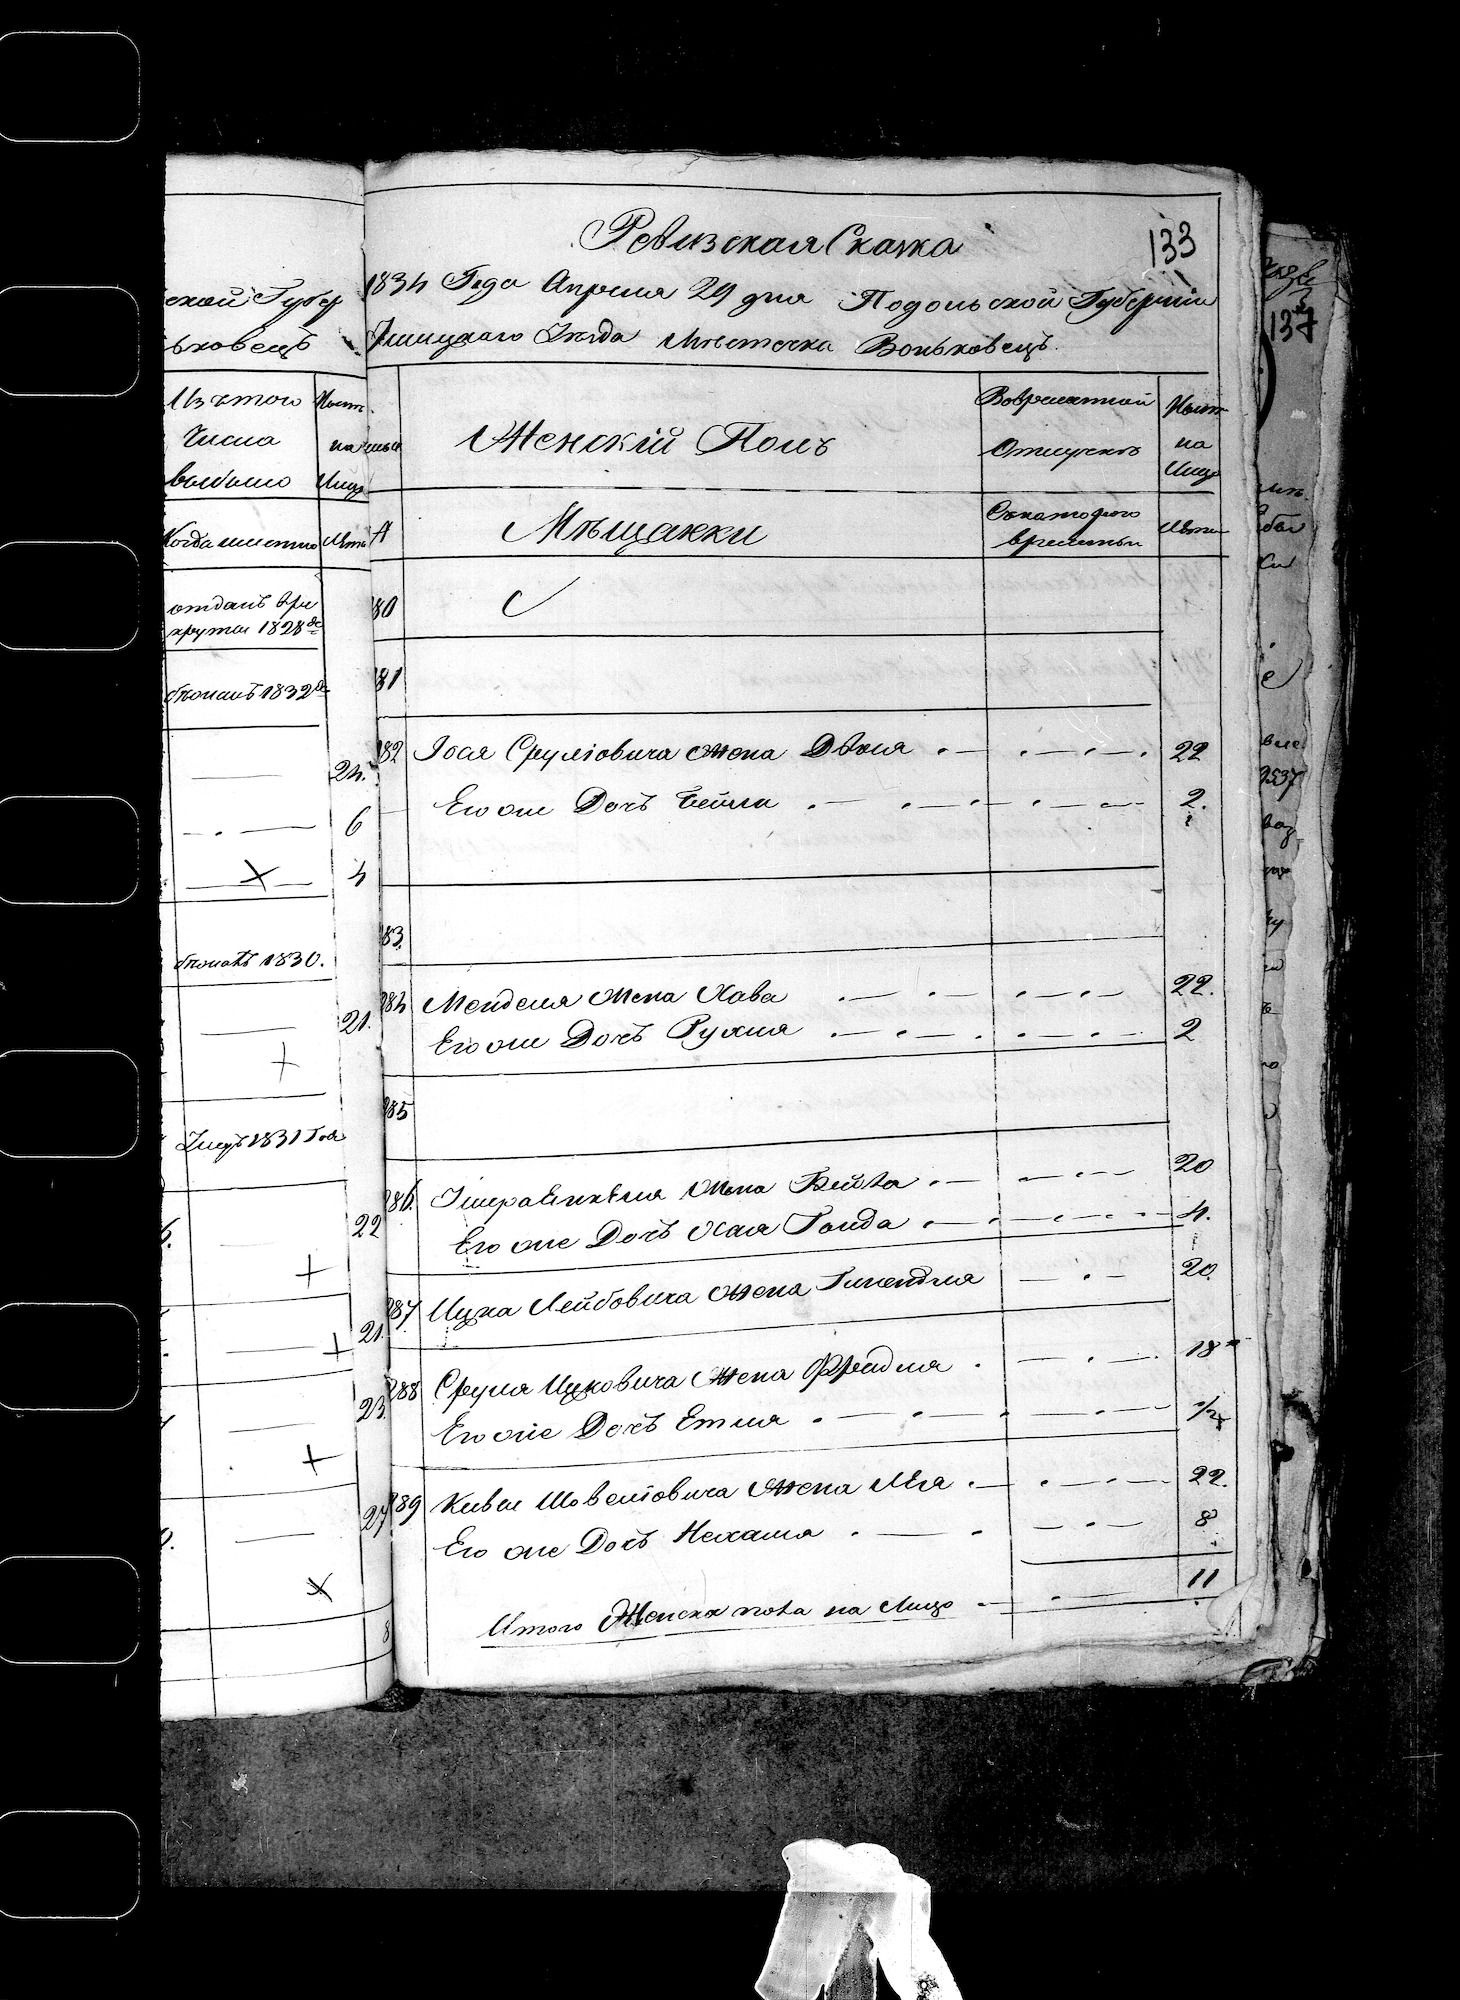 ской Губер
ьковецъ
Изътого
Числа
выбыло
на
Лицо
Когда именно
Лѣта
отданъ врек
круты 1828 го
бѣжалъ 1832 го
24.
6
4
бѣжалъ 1830.
21.
Умеръ 1831 Года
22
21.
23
27
8
133
Ревизская Сказка
1834 Года Апреля 29 дня Подольской Губерніи
Ушицкаго Уезда Мѣстечка Воньковецъ.
Женскій Полъ
Вовременной
Отлучкѣ
Нынѣ
на
Лицо
Мѣщанки
Скотораго
времени
Лѣта
80
81
82 Іося Срулiовича жена Двося 22
Его же Дочь Бейла 2.
83.
284 Менделя жена Хава 22.
Его же Дочь Рухля 2
285
286. жена Бейла 20
Его же Дочь Хая Голда 4.
287 Ицка Лейбовича жена Гинендля 20.
288 Сруля Ицковича жена Фрейдля 18
Его же Дочь Етля 1/2
289 Кивы Шовелiовича жена Лѣя 22.
Его же Дочь Нехама 8
Итого Женска пола на Лицо 11
137